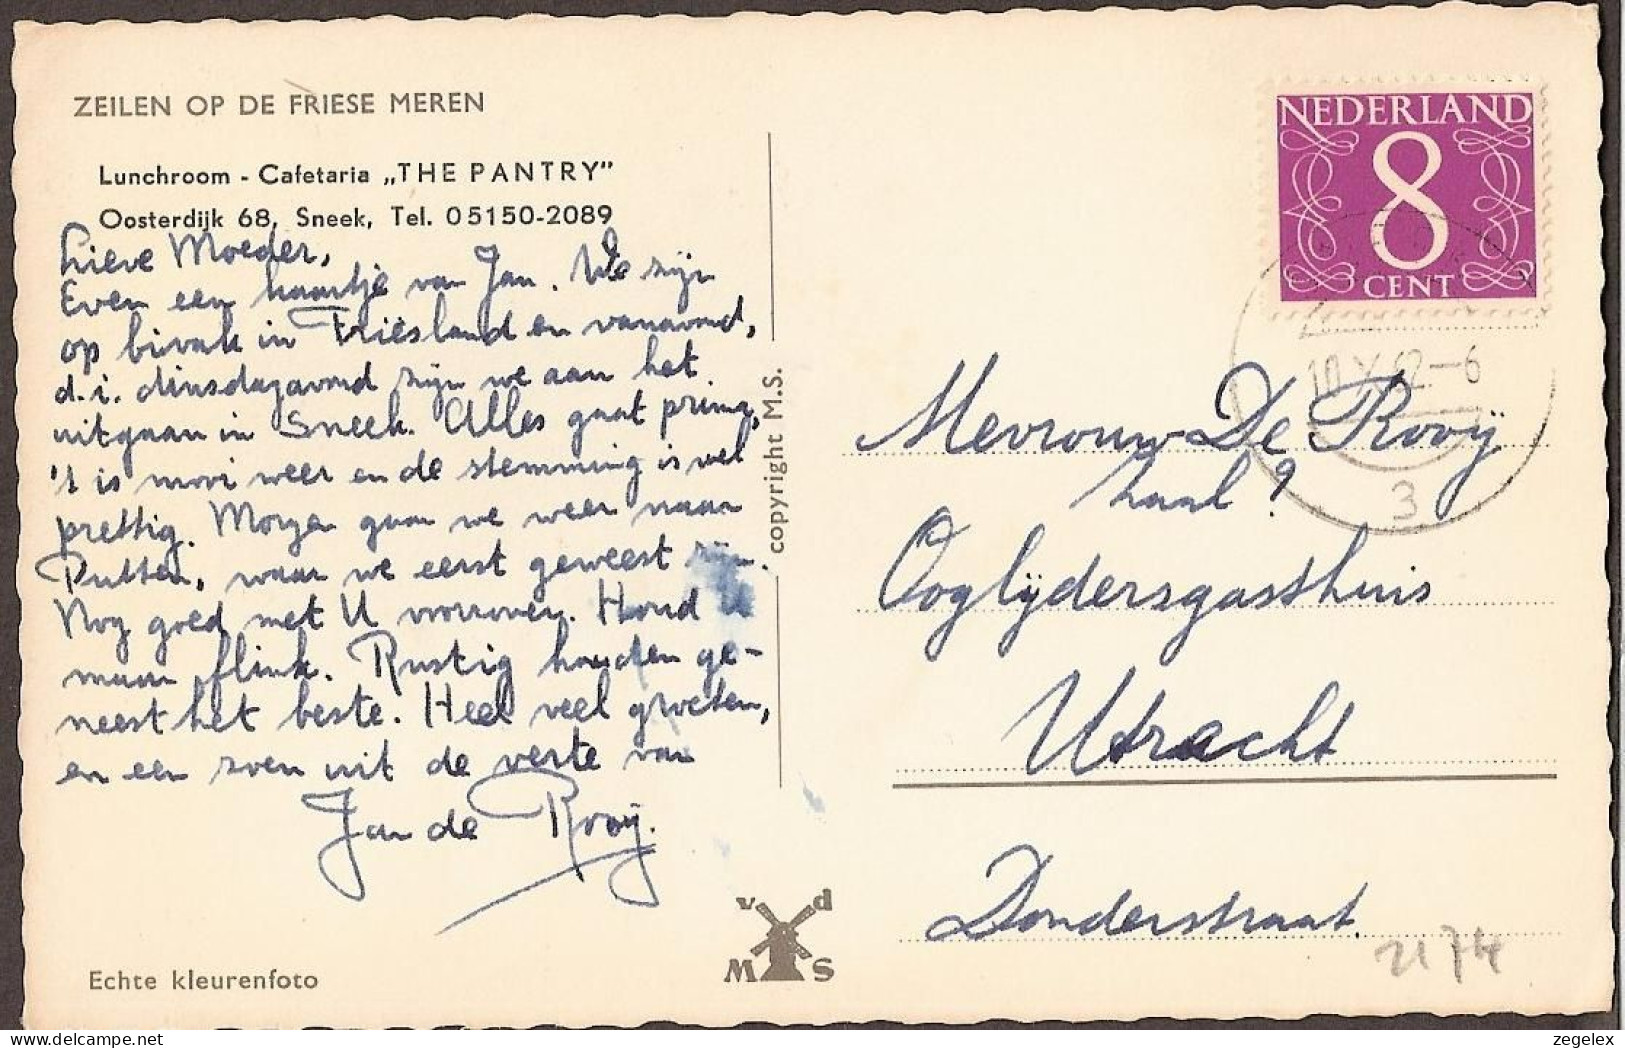 ZEILEN OP DE FRIESE MEREN
Lunchroom - Cafetaria „THE PANTRY"
Oosterdijk 68, Sneek, Tel. 05150-2089
Lieve Moeder,
Even een kaartje van Jan. We zijn
op bivak in Friesland en vanavond,
d.i. dinsdagavond zijn we aan het
uitgaan in Sneek. Alles gaat prima,
't is mooi weer en de stemming is wel
prettig. Morgen gaan we weer naar
Putten, waar we eerst geweest zijn.
Nog goed met U voorover. Houd U
maar flink. Rustig houden ge-
neest het beste. Heel veel groeten,
en een zoen uit de verte van
Jan de Rooij.
Echte kleurenfoto
copyright M.S.
v d
M S
NEDERLAND
8
CENT
10 X 62-6
3
Mevrouw De Rooij
zaal ?
Ooglijdersgasthuis
Utrecht
Donderstraat.
2174
zegelex